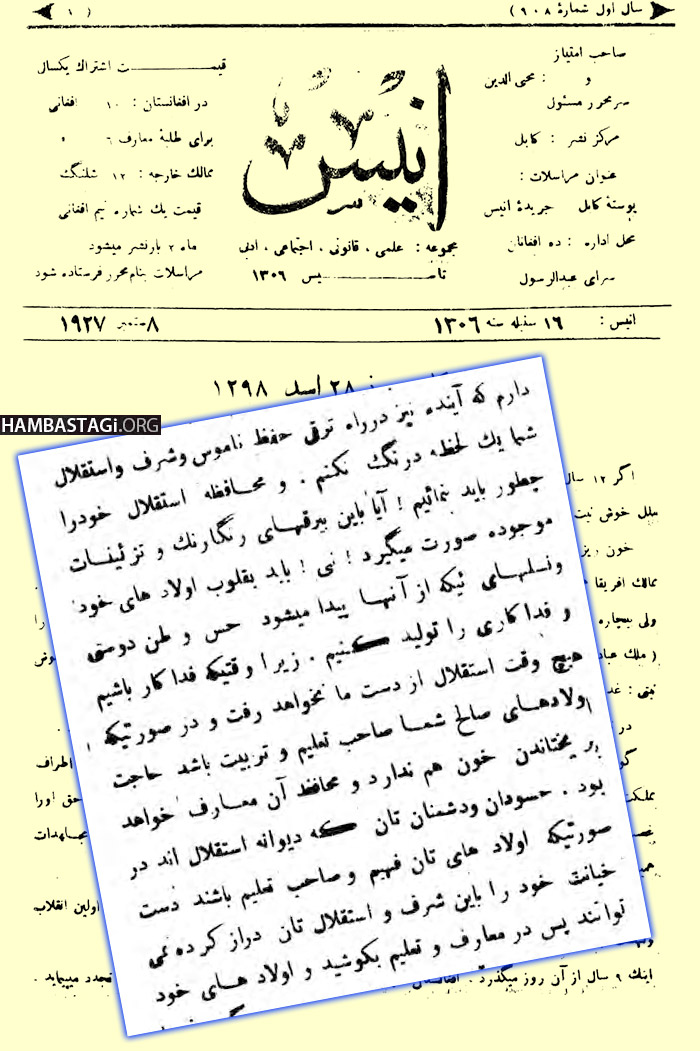 سال اول شمارهٔ (۹۰۸)
(۱)
صاحب امتیاز
و : محی الدین
سرمحرر مسئول
مرکز نشر : کابل
عنوان مراسلات :
پوستهٔ کابل جریدهٔ انیس
محل اداره : ده افغانان
سرای عبدالرسول
انیس
مجموعه : علمی ، قانونی ، اجتماعی ، ادبی
تاسیس ۱۳۰۶
قیمت اشتراك یکسال
در افغانستان : ۱۰ افغانی
برای طلبهٔ معارف ۶
ممالك خارجه : ۱۲ شلنگ
قیمت یك شماره نیم افغانی
ماه ۲ بار نشر میشود
مراسلات بنام محرر فرستاده شود
انیس : ۱۶ سنبله سنه ۱۳۰۶
۸ ستمبر ۱۹۲۷
۲۸ اسد ۱۲۹۸
HAMBASTAGI.ORG
دارم که آینده نیز در راه ترقی حفظ ناموس و شرف و استقلال
شما یك لحظه درنگ نکنم . و محافظه استقلال خود را
چطور باید بنمائیم ! آیا باین بیرقهای رنگارنك و تزئینات
موجوده صورت میگیرد ! نی ! باید بقلوب اولاد های خود
و نسلهای ئیکه از آنها پیدا میشود حس و طن دوستی
و فداکاری را تولید کنیم . زیرا وقتیکه فداکار باشیم
هیچ وقت استقلال از دست ما نخواهد رفت و در صورتیکه
اولادهای صالح شما صاحب تعلیم و تربیت باشد حاجت
بریختاندن خون هم ندارد و محافظ آن معارف خواهد
بود . حسودان ودشمنان تان که دیوانه استقلال اند در
صورتیکه اولاد های تان فهیم و صاحب تعلیم باشند دست
خیانت خود را باین شرف و استقلال تان دراز کرده نمی
توانند پس در معارف و تعلیم بکوشید و اولاد های خود
اگر ۱۲ سال
ملل خوش
خون ریز
ممالك افریقا
ولی بیچاره
را
در
اطراف
حق اورا
مجاهدات
اولین انقلاب
اینك ۹ سال از آن روز میگذرد .
تجدد میپیماید .